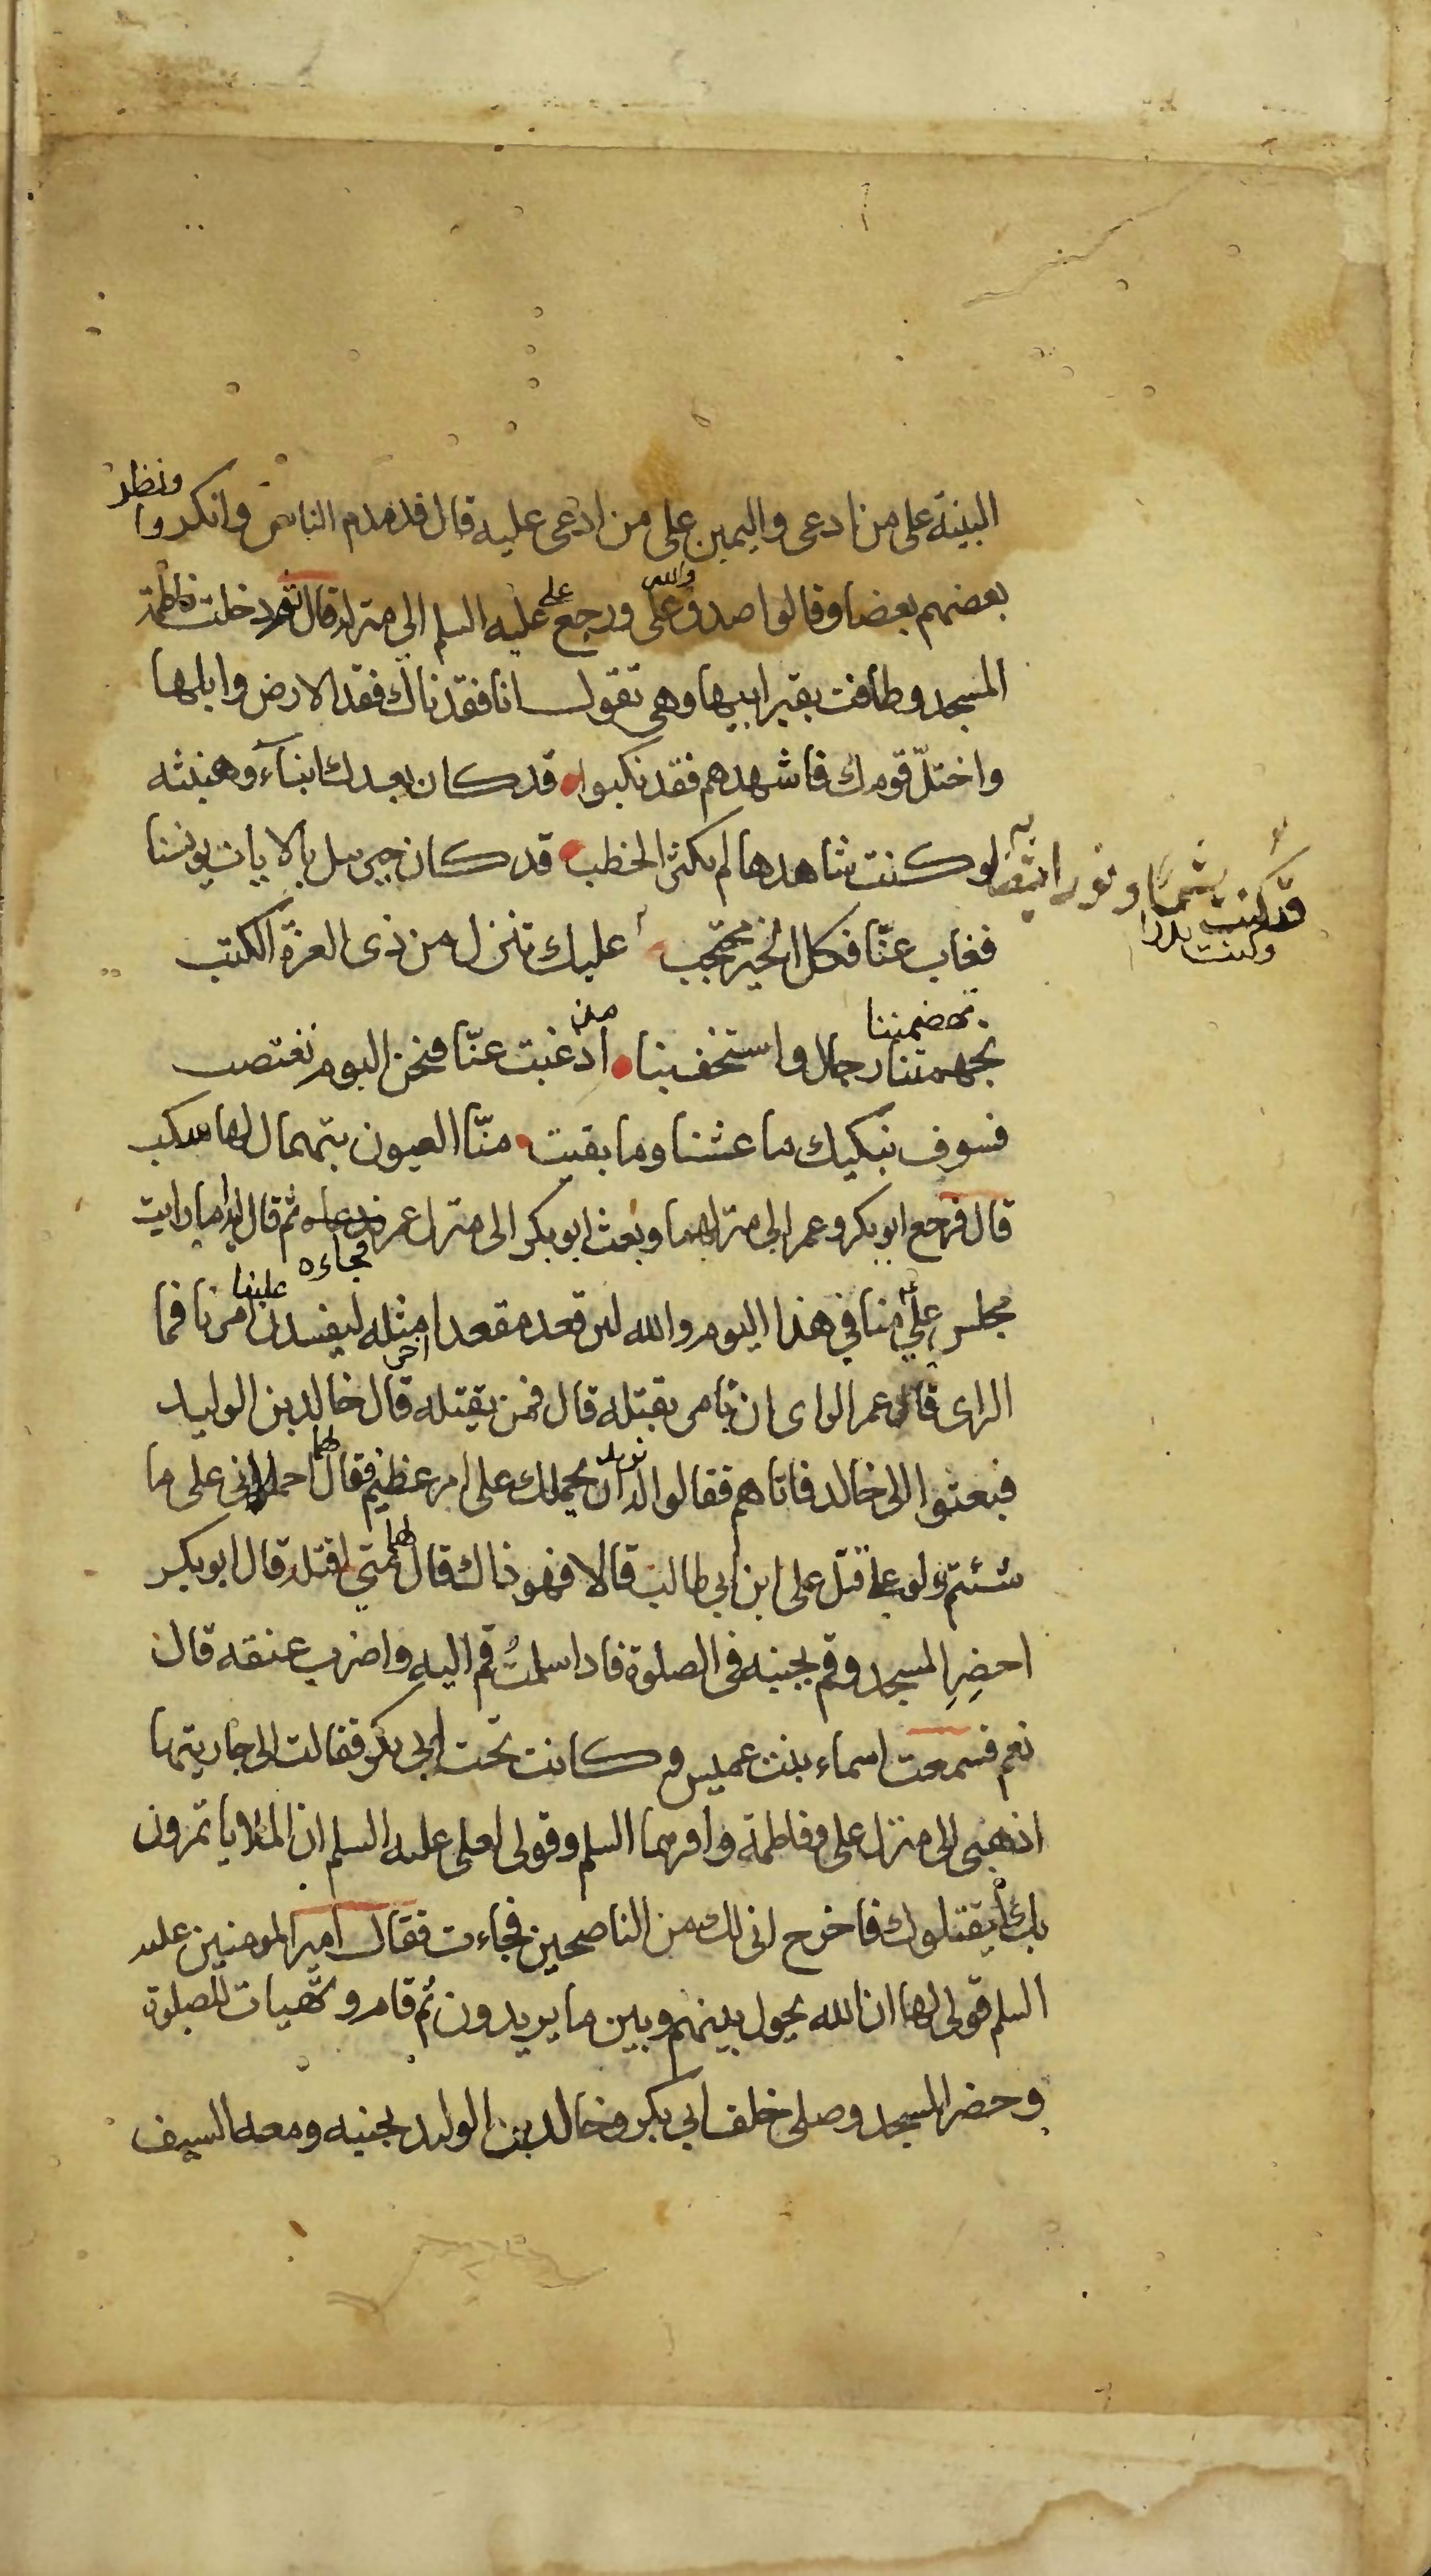 البينة على من ادعى واليمين على من ادعى عليه قال فدمدم الناس وانكروا ونظر
بعضهم بعضا وقالوا صدق والله على ورجع على عليه السلم الى منزله قال ودخلت فاطمة
المسجد وطافت بقبر ابيها وهى تقول انا فقدناك فقد الارض وابلها
واختلّ قومك فاشهدهم فقد نكبوا قد كان بعدك انبآء وهنبثه
لو كنت شاهدها لم يكثر الخطب قد كان جبريل بالايات يونسنا
فغاب عنّا فكل الخير محتجب عليك تنزل من ذى العزة الكتب
قد كنت شمسا ونورا
وكنت بدرا
تهضمتنا
تجهمتنا رجال واستخف بنا اذ غبت عنّا فنحن اليوم نغتصب
فسوف نبكيك ما عشنا وما بقيت منّا العيون بتهمال لها سكب
قال فرجع ابوبكر وعمر الى منزلهما وبعث ابوبكر الى منزل عمر فدعاه ثم قال له اما رايت
فجاءه
مجلس علي منا في هذا اليوم والله لئن قعد مقعدا اخر مثله ليفسدن علينا امرنا فما
الراى قال عمر الراى ان تامر بقتله قال فمن يقتله قال خالد بن الوليد
فبعثوا الى خالد فاتاهم فقالوا له نريد ان نحملك على امر عظيم فقال لهما احملانى على ما
شئتم ولو على قتل على ابن ابى طالب قالا فهو ذاك قال لهما متى اقتله قال ابوبكر
احضرِ المسجد وقم بجنبه فى الصلوة فاذا سلمتُ قم اليه واضرب عنقه قال
نعم فسمعت اسماء بنت عميس وكانت تحت ابى بكر فقالت الى جاريتها
اذهبى الى منزل على وفاطمة واقرئهما السلم وقولى لعلى عليه السلم ان الملأ ياتمرون
بك ليقتلوك فاخرج انى لك من الناصحين فجاءت فقال امير المومنين عليه
السلم قولى لها ان الله يحول بينهم وبين ما يريدون ثم قام وتهيات للصلوة
وحضر المسجد وصلى خلف ابي بكر وخالد بن الوليد بجنبه ومعه السيف